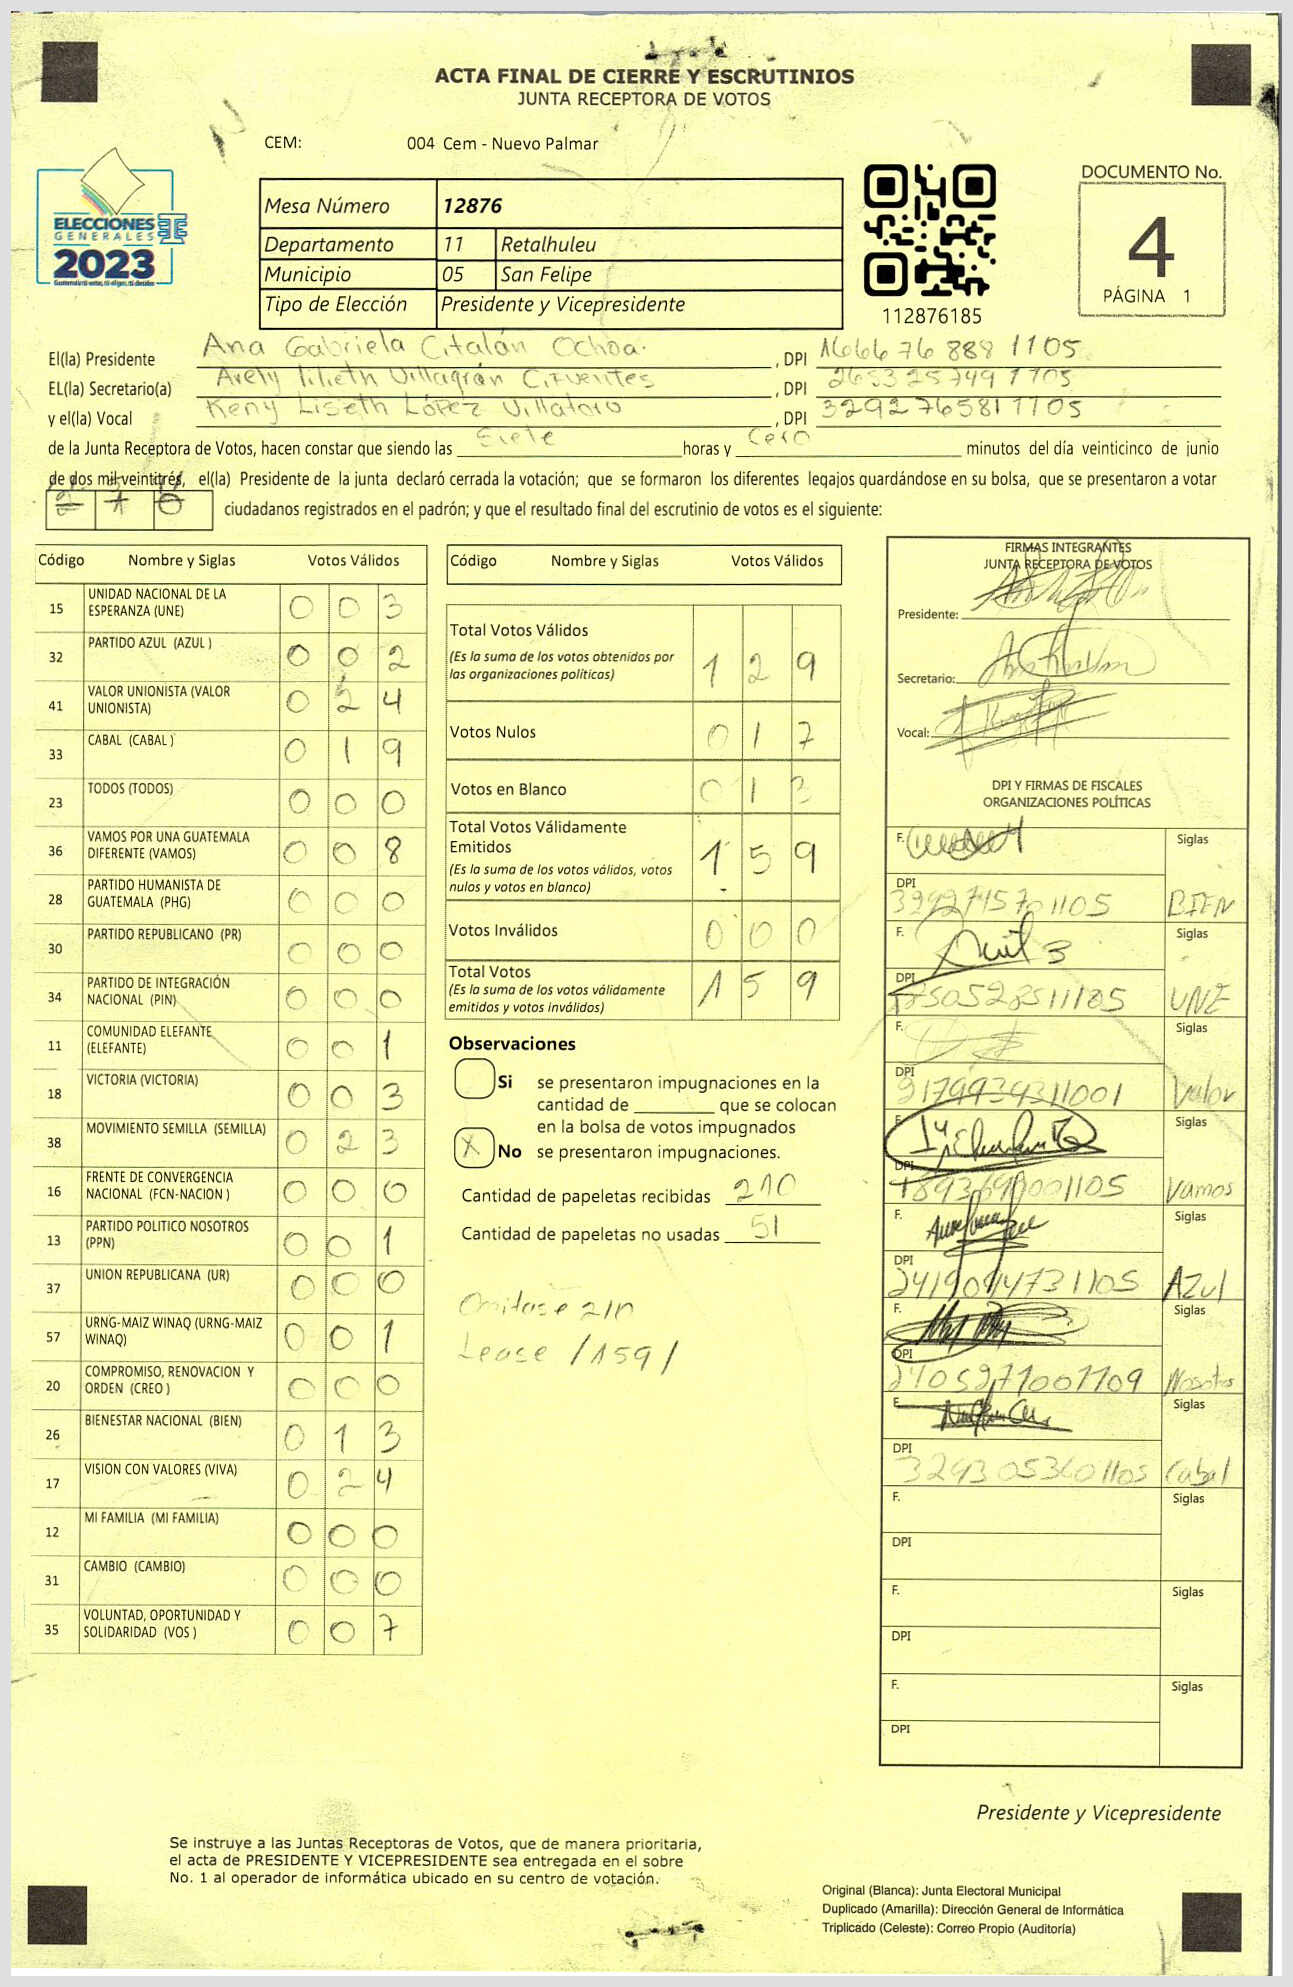 ACTA FINAL DE CIERRE Y ESCRUTINIOS
JUNTA RECEPTORA DE VOTOS
CEM: 004 Cem - Nuevo Palmar
ELECCIONES
GENERALES
2023
Mesa Número 12876
Departamento 11 Retalhuleu
Municipio 05 San Felipe
Tipo de Elección Presidente y Vicepresidente
112876185
DOCUMENTO No.
4
PÁGINA 1
El(la) Presidente Ana Gabriela Citalán Ochoa. , DPI 1666 76 888 1105
EL(la) Secretario(a) Arely lilieth Villagrán Cifuentes , DPI 2653257491105
y el(la) Vocal Keny Liseth López Villatoro , DPI 3292765811105
de la Junta Receptora de Votos, hacen constar que siendo las Siete horas y Cero minutos del día veinticinco de junio
de dos mil veintitrés, el(la) Presidente de la junta declaró cerrada la votación; que se formaron los diferentes legajos guardándose en su bolsa, que se presentaron a votar
ciudadanos registrados en el padrón; y que el resultado final del escrutinio de votos es el siguiente:
Código Nombre y Siglas Votos Válidos
15 UNIDAD NACIONAL DE LA ESPERANZA (UNE) 0 0 3
32 PARTIDO AZUL (AZUL ) 0 0 2
41 VALOR UNIONISTA (VALOR UNIONISTA) 0 2 4
33 CABAL (CABAL ) 0 1 9
23 TODOS (TODOS) 0 0 0
36 VAMOS POR UNA GUATEMALA DIFERENTE (VAMOS) 0 0 8
28 PARTIDO HUMANISTA DE GUATEMALA (PHG) 0 0 0
30 PARTIDO REPUBLICANO (PR) 0 0 0
34 PARTIDO DE INTEGRACIÓN NACIONAL (PIN) 0 0 0
11 COMUNIDAD ELEFANTE (ELEFANTE) 0 0 1
18 VICTORIA (VICTORIA) 0 0 3
38 MOVIMIENTO SEMILLA (SEMILLA) 0 2 3
16 FRENTE DE CONVERGENCIA NACIONAL (FCN-NACION ) 0 0 0
13 PARTIDO POLITICO NOSOTROS (PPN) 0 0 1
37 UNION REPUBLICANA (UR) 0 0 0
57 URNG-MAIZ WINAQ (URNG-MAIZ WINAQ) 0 0 1
20 COMPROMISO, RENOVACION Y ORDEN (CREO ) 0 0 0
26 BIENESTAR NACIONAL (BIEN) 0 1 3
17 VISION CON VALORES (VIVA) 0 2 4
12 MI FAMILIA (MI FAMILIA) 0 0 0
31 CAMBIO (CAMBIO) 0 0 0
35 VOLUNTAD, OPORTUNIDAD Y SOLIDARIDAD (VOS ) 0 0 7
Código Nombre y Siglas Votos Válidos
Total Votos Válidos 1 2 9
(Es la suma de los votos obtenidos por
las organizaciones políticas)
Votos Nulos 0 1 7
Votos en Blanco 0 1 3
Total Votos Válidamente
Emitidos 1 5 9
(Es la suma de los votos válidos, votos
nulos y votos en blanco)
Votos Inválidos 0 0 0
Total Votos 1 5 9
(Es la suma de los votos válidamente
emitidos y votos inválidos)
Observaciones
Si se presentaron impugnaciones en la
cantidad de ________ que se colocan
en la bolsa de votos impugnados
X No se presentaron impugnaciones.
Cantidad de papeletas recibidas 210
Cantidad de papeletas no usadas 51
Omitase 210
Lease /159/
FIRMAS INTEGRANTES
JUNTA RECEPTORA DE VOTOS
Presidente:
Secretario:
Vocal:
DPI Y FIRMAS DE FISCALES
ORGANIZACIONES POLÍTICAS
F. Siglas
DPI 3292745701105 BIEN
F. Siglas
DPI UNE
F. Siglas
DPI 3179939311001 Valor
F. Siglas
DPI Vamos
F. Siglas
DPI 2419094731105 AZul
F. Siglas
DPI 2405271001109 Nosotros
F. Siglas
DPI 3293053601105 Cabal
F. Siglas
DPI
F. Siglas
DPI
F. Siglas
DPI
Presidente y Vicepresidente
Se instruye a las Juntas Receptoras de Votos, que de manera prioritaria,
el acta de PRESIDENTE Y VICEPRESIDENTE sea entregada en el sobre
No. 1 al operador de informática ubicado en su centro de votación.
Original (Blanca): Junta Electoral Municipal
Duplicado (Amarilla): Dirección General de Informática
Triplicado (Celeste): Correo Propio (Auditoría)